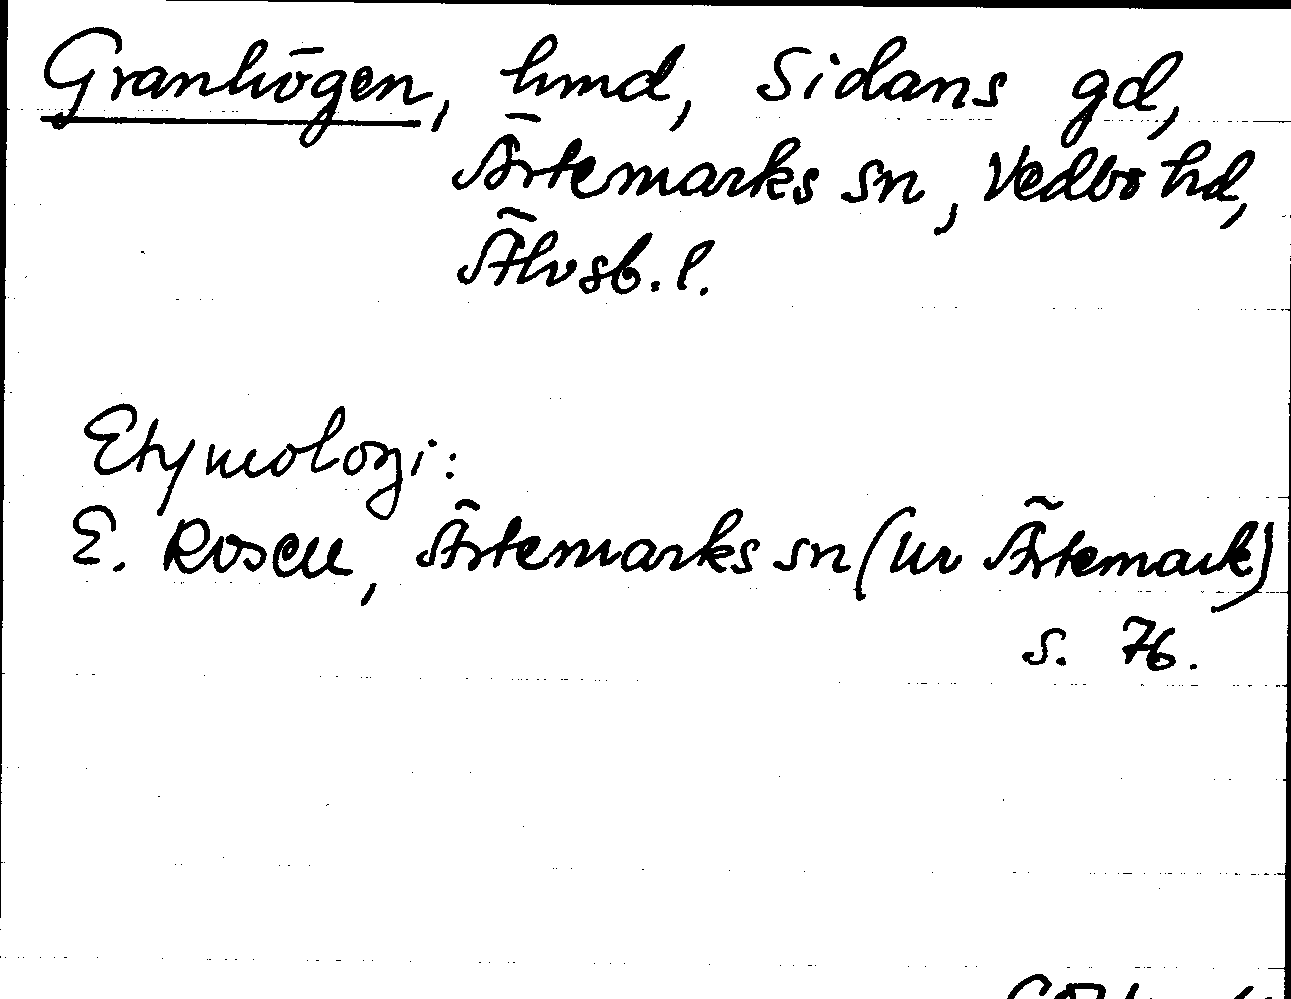 Granhögen, hmd, Sidans gd,
Ärtemarks sn, Vedbo hd,
Älvsb. l.
Etymologi:
E. Rosell, Ärtemarks sn (ur Ärtemark)
s. 76.